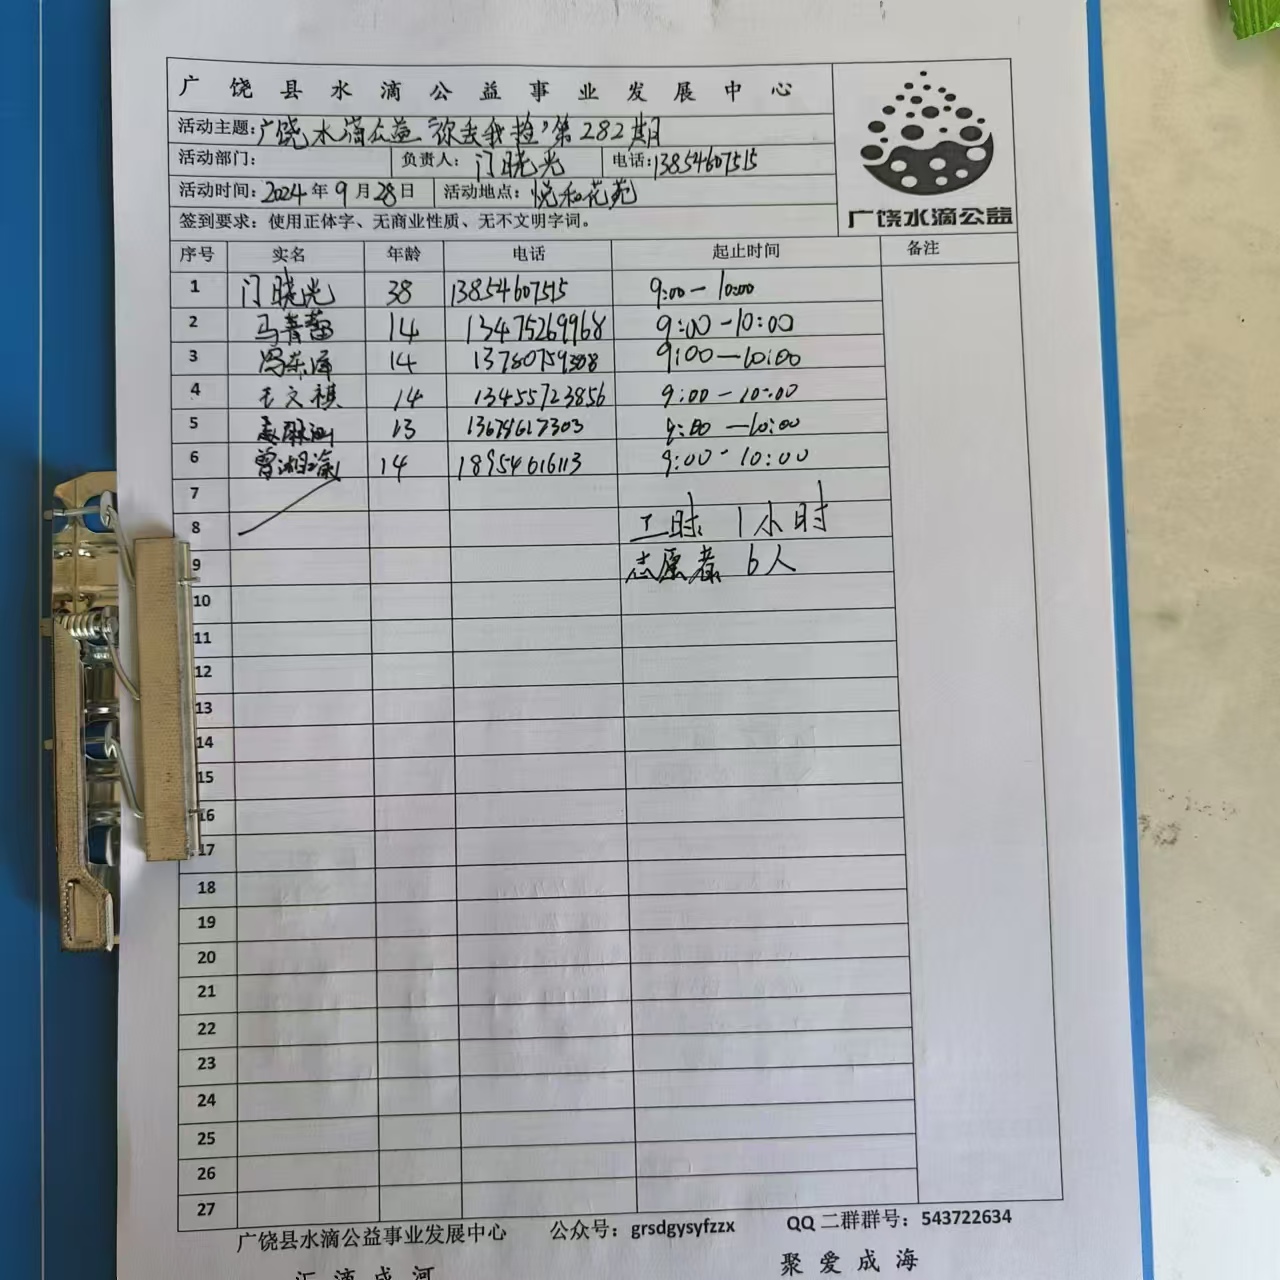 广饶县水滴公益事业发展中心
活动主题:广饶水滴公益"你丢我捡"第282期
活动部门: 负责人: 门晓光 电话:13854607515
活动时间:2024年9月28日 活动地点:悦和花苑
签到要求:使用正体字、无商业性质、无不文明字词。
广饶水滴公益
序号 实名 年龄 电话 起止时间 备注
1 门晓光 38 13854607515 9:00-10:00
2 马菁蕾 14 13475269968 9:00-10:00
3 冯东泽 14 9:00-10:00
4 王文祺 14 13455723856 9:00-10:00
5 13 -10:00
6 14 18954616113 9:00-10:00
7
8 工时 1小时
9 志愿者 6人
10
11
12
13
14
15
16
17
18
19
20
21
22
23
24
25
26
27
广饶县水滴公益事业发展中心 公众号:grsdgysyfzzx QQ二群群号:543722634
汇滴成河 聚爱成海